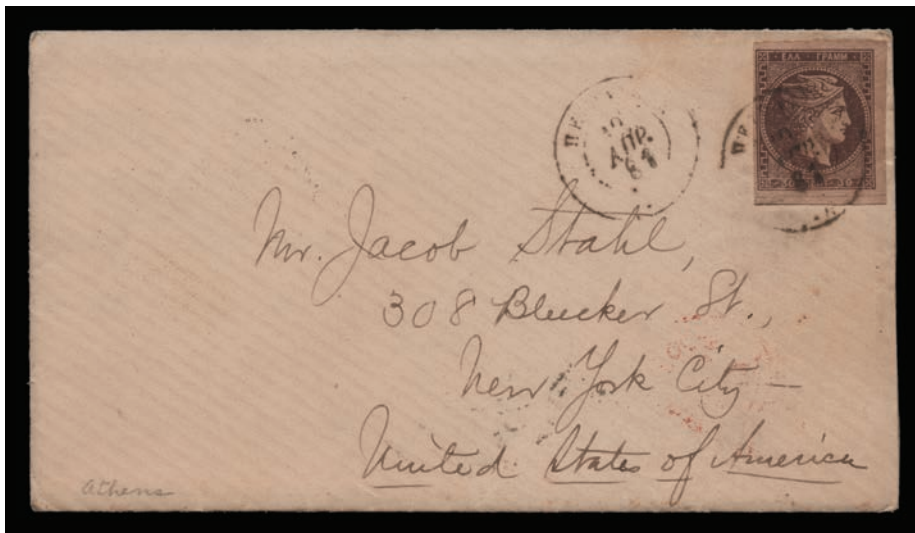 ΕΛΛ ΓΡΑΜΜ
10
ΑΠΡ.
Mr. Jacob Stahl,
308 Bleecker St.,
New York City —
United States of America
Athens